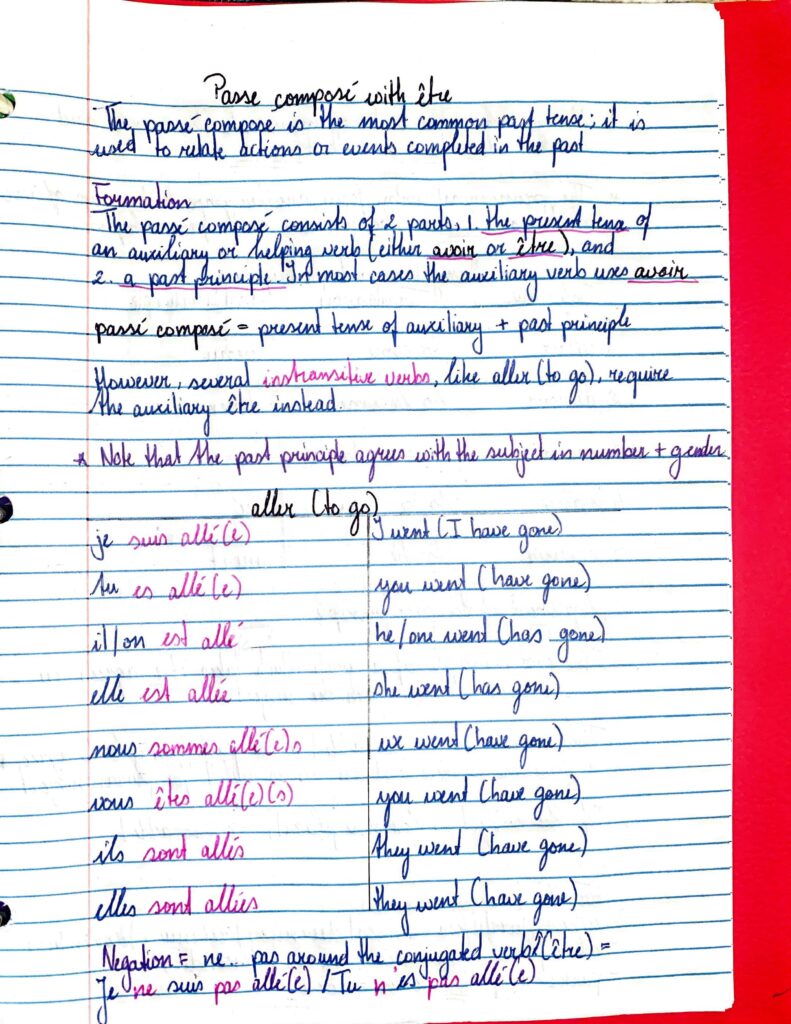 Passe composé with être
The passé compose is the most common past tense; it is
used to relate actions or events completed in the past
Formation
The passé composé consists of 2 parts, 1. the present tense of
an auxiliary or helping verb (either avoir or être), and
2. a past principle. In most cases the auxiliary verb uses avoir
passé composé = present tense of auxiliary + past principle
However, several instransitive verbs, like aller (to go), require
the auxiliary être instead.
* Note that the past principle agrees with the subject in number + gender
aller (to go)
je suis allé(e) I went (I have gone)
tu es allé(e) you went (have gone)
il/on est allé he/one went (has gone)
elle est allée she went (has gone)
nous sommes allé(e)s we went (have gone)
vous êtes allé(e)(s) you went (have gone)
ils sont allés they went (have gone)
elles sont allées they went (have gone)
Negation = ne.. pas around the conjugated verb (être) =
Je ne suis pas allé(e) / Tu n'es pas allé(e)